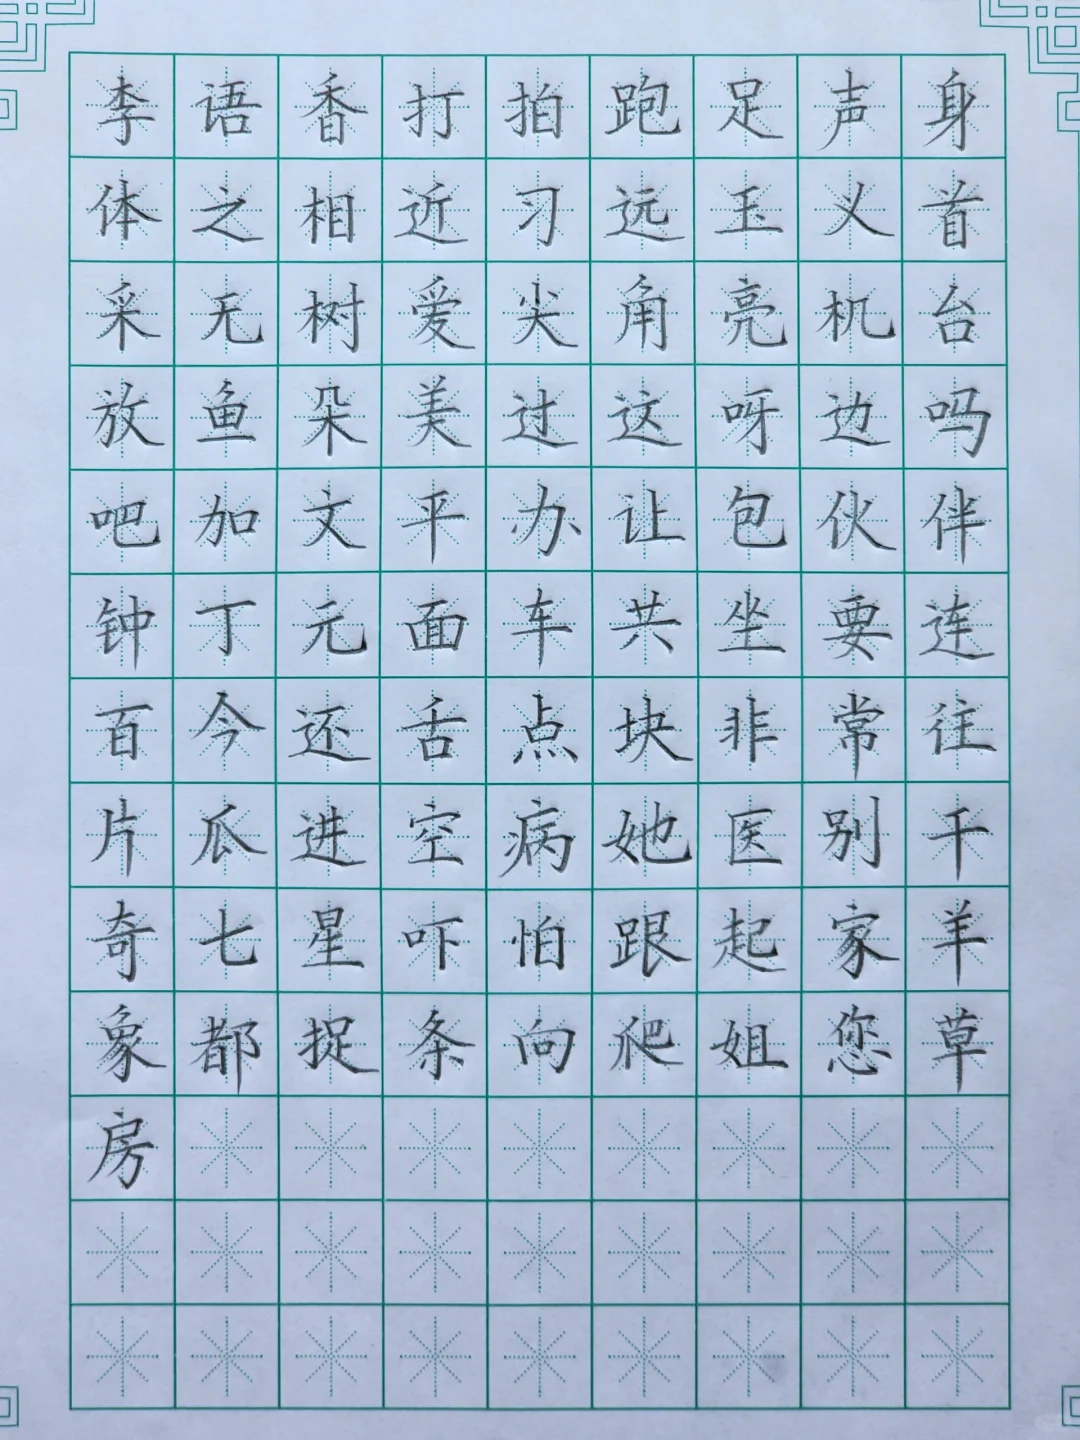 李语香打拍跑足声身
体之相近习远玉义首
采无树爱尖角亮机台
放鱼朵美过这呀边吗
吧加文平办让包伙伴
钟丁元面车共坐要连
百今还舌点块非常往
片瓜进空病她医别干
奇七星吓怕跟起家羊
象都捉条向爬姐您草
房